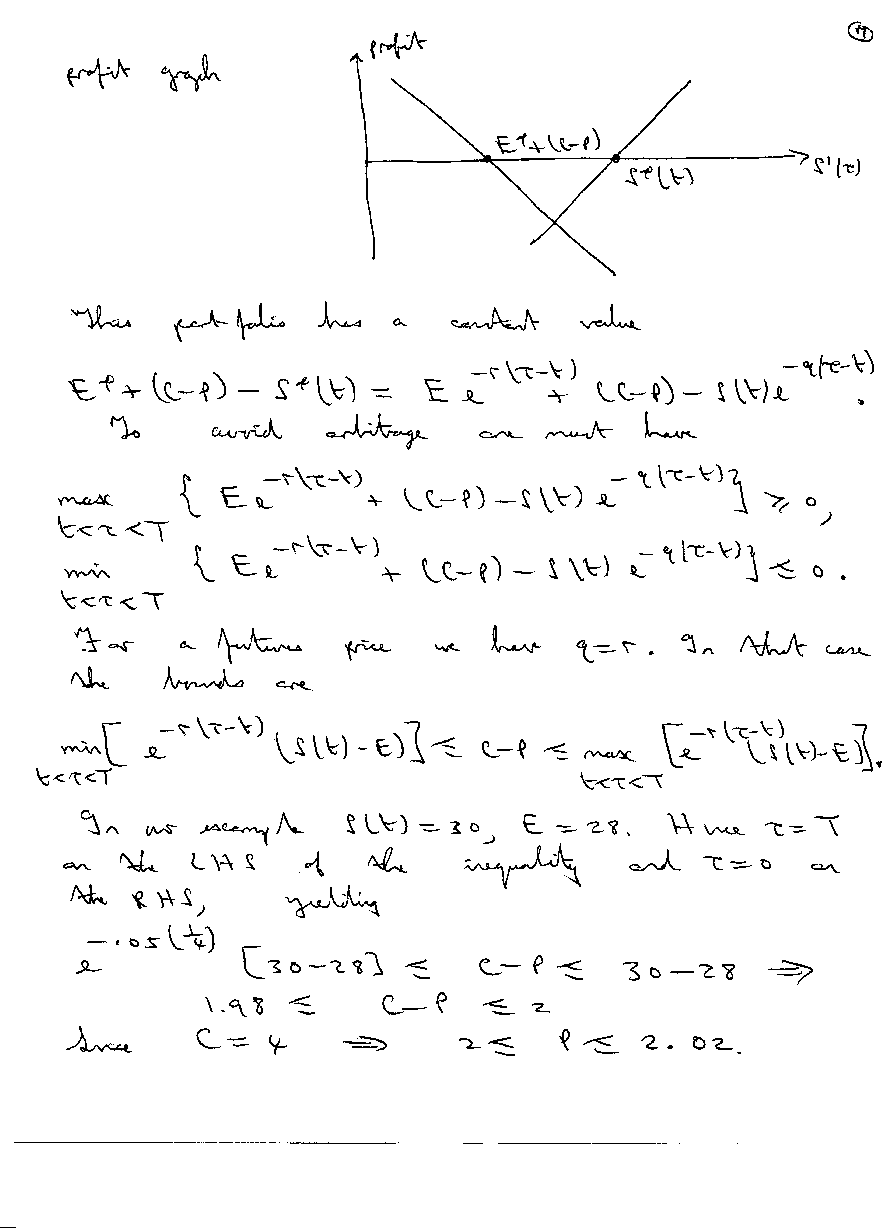 profit graph
profit
E*+(C-P)
S*(t)
S'(τ)
This portfolio has a constant value
E*+(C-P) - S*(t) = E e^{-r(τ-t)} + (C-P) - S(t)e^{-q(τ-t)}.
To avoid arbitrage one must have
max_{t<τ<T} { E e^{-r(τ-t)} + (C-P) - S(t) e^{-q(τ-t)} } ≥ 0,
min_{t<τ<T} { E e^{-r(τ-t)} + (C-P) - S(t) e^{-q(τ-t)} } ≤ 0.
For a futures price we have q=r. In that case
the bounds are
min_{t<τ<T} [ e^{-r(τ-t)} (S(t)-E) ] ≤ C-P ≤ max_{t<τ<T} [ e^{-r(τ-t)} (S(t)-E) ].
In our example S(t)=30, E=28. Hence τ=T
on the LHS of the inequality and τ=0 on
the RHS, yielding
e^{-.05(1/4)} [30-28] ≤ C-P ≤ 30-28 ⇒
1.98 ≤ C-P ≤ 2
Since C=4 ⇒ 2 ≤ P ≤ 2.02.